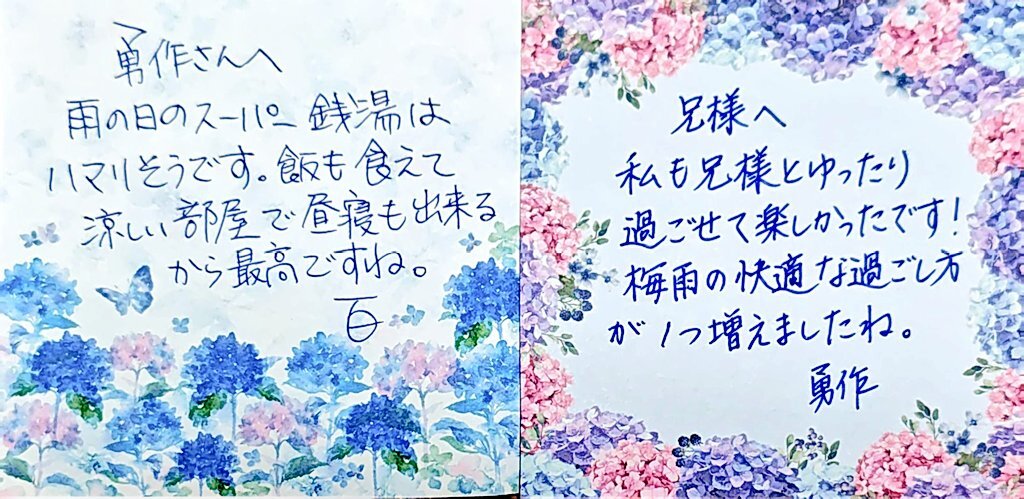 勇作さんへ
雨の日のスーパー銭湯は
ハマりそうです。飯も食えて
涼しい部屋で昼寝も出来る
から最高ですね。
百
兄様へ
私も兄様とゆったり
過ごせて楽しかったです!
梅雨の快適な過ごし方
が1つ増えましたね。
勇作